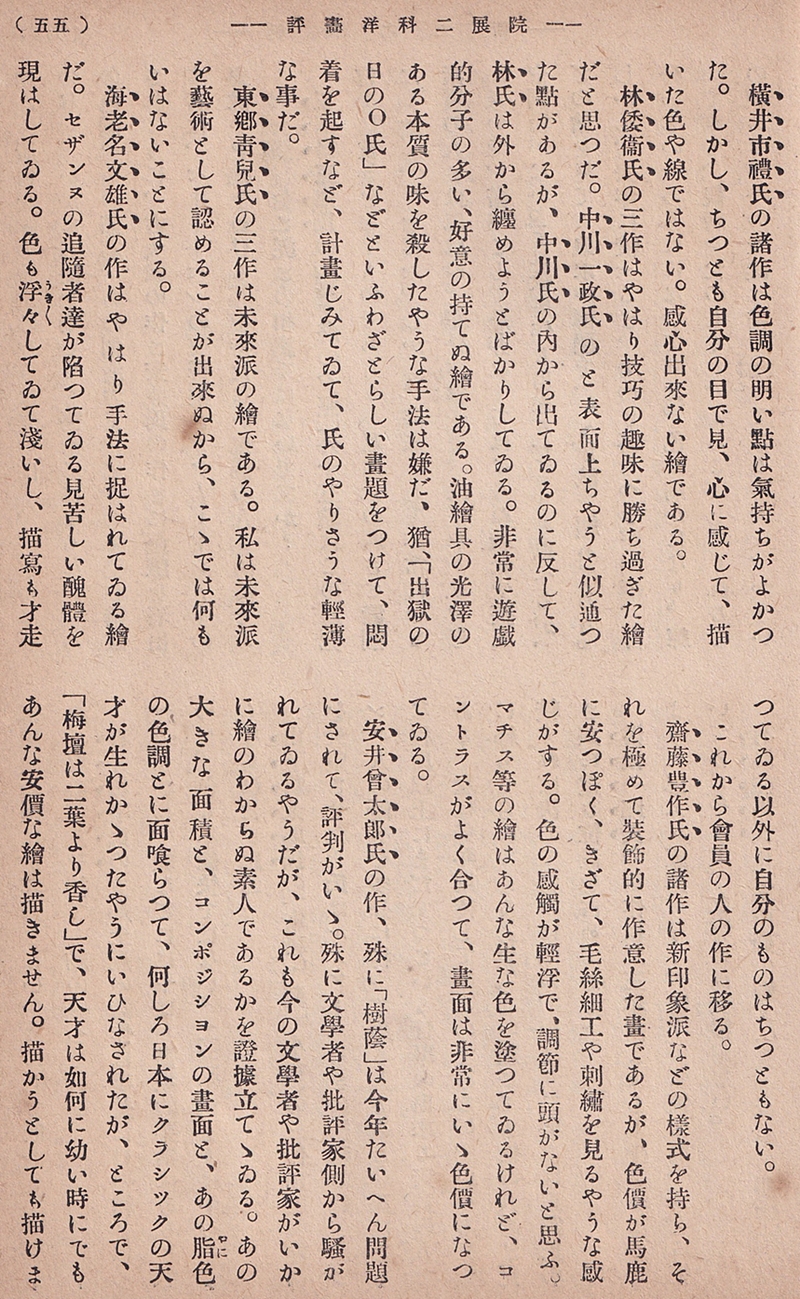 (五五)　――評畵洋科二展院――
横井市禮氏の諸作は色調の明い點は氣持ちがよかつ
た。しかし、ちつとも自分の目で見、心に感じて、描
いた色や線ではない。感心出來ない繪である。
林倭衞氏の三作はやはり技巧の趣味に勝ち過ぎた繪
だと思つだ。中川一政氏のと表面上ちやうと似通つ
た點があるが、中川氏の內から出てゐるのに反して、
林氏は外から纏めようとばかりしてゐる。非常に遊戲
的分子の多い、好意の持てぬ繪である。油繪具の光澤の
ある本質の味を殺したやうな手法は嫌だ、猶、「出獄の
日のO氏」などといふわざとらしい畫題をつけて、悶
着を起すなど、計畫じみてゐて、氏のやりさうな輕薄
な事だ。
東鄕靑兒氏の三作は未來派の繪である。私は未來派
を藝術として認めることが出來ぬから、こゝでは何も
いはないことにする。
海老名文雄氏の作はやはり手法に捉はれてゐる繪
だ。セザンヌの追隨者達が陷つてゐる見苦しい醜體を
現はしてゐる。色も浮々してゐて淺いし、描寫も才走
うき〱
つてゐる以外に自分のものはちつともない。
これから會員の人の作に移る。
齋藤豐作氏の諸作は新印象派などの樣式を持ち、そ
れを極めて裝飾的に作意した畫であるが、色價が馬鹿
に安つぽく、きざて、毛絲細工や刺繡を見るやうな感
じがする。色の感觸が輕浮で、調節に頭がないと思ふ。
マチス等の繪はあんな生な色を塗つてゐるけれど、コ
ントラスがよく合つて、畫面は非常にいゝ色價になつ
てゐる。
安井曾太郞氏の作、殊に「樹蔭」は今年たいへん問題
にされて、評判がいゝ。殊に文學者や批評家側から騷が
れてゐるやうだが、これも今の文學者や批評家がいか
に繪のわからぬ素人であるかを證據立てゝゐる。あの
大きな面積と、コンポジションの畫面と、あの脂色
やに
の色調とに面喰らつて、何しろ日本にクラシックの天
才が生れかゝつたやうにいひなされたが、ところで、
「梅壇は二葉より香し」で、天才は如何に幼い時にでも
あんな安價な繪は描きません。描かうとしても描けま